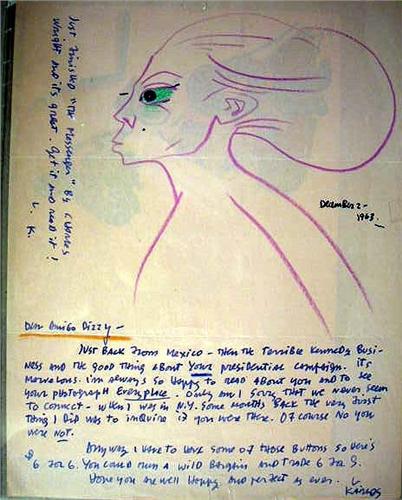 Just finished "The Messenger" by Charles
Wright and it's great. Get it and read it!
L. K.
December 2 -
1963.
Dear Amigo Dizzy -
Just back from Mexico - then the terrible Kennedy busi-
ness and the good thing about Your presidential campaign. It's
marvelous. I'm always so happy to read about you and to see
your photograph everyplace. Only am I sorry that we never seem
to connect - when I was in N.Y. some months back the very first
thing I did was to inquire if you were there. Of course no you
were not.
Anyway I have to have some of those buttons so here's
$6 for 6. You could run a wild bargain and trade 6 for 9.
Hope you are well happy and perfect as ever.